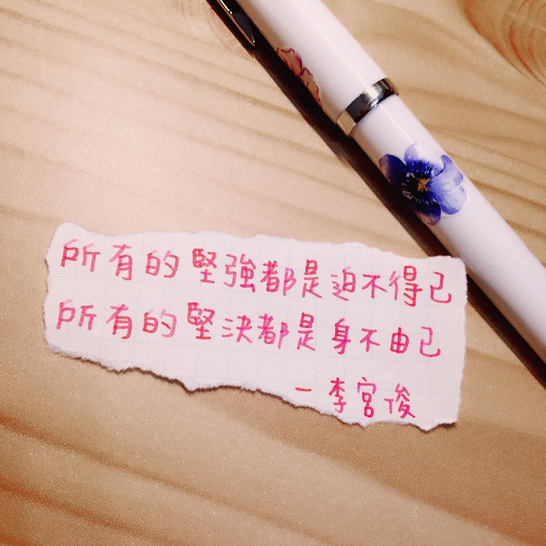 所有的堅強都是迫不得已
所有的堅決都是身不由己
－李宮俊